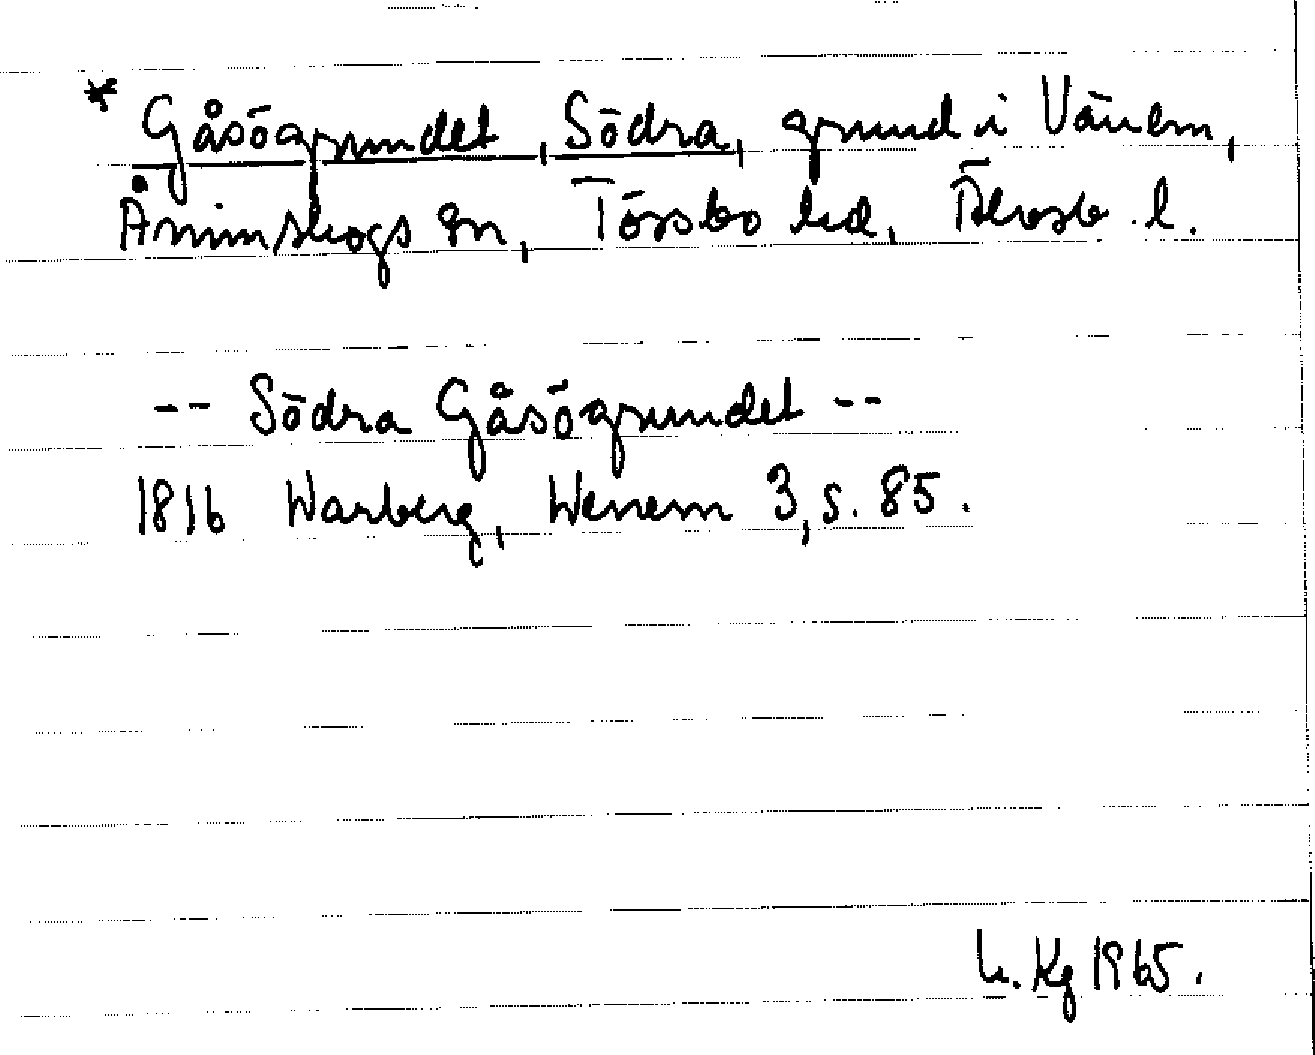 * Gåsögrundet, Södra, grund i Vänern,
Ånimskogs sn, Tössbo hd, Älvsb. l.
-- Södra Gåsögrundet --
1816 Warberg, Wenern 3, s. 85.
Kg 1965.